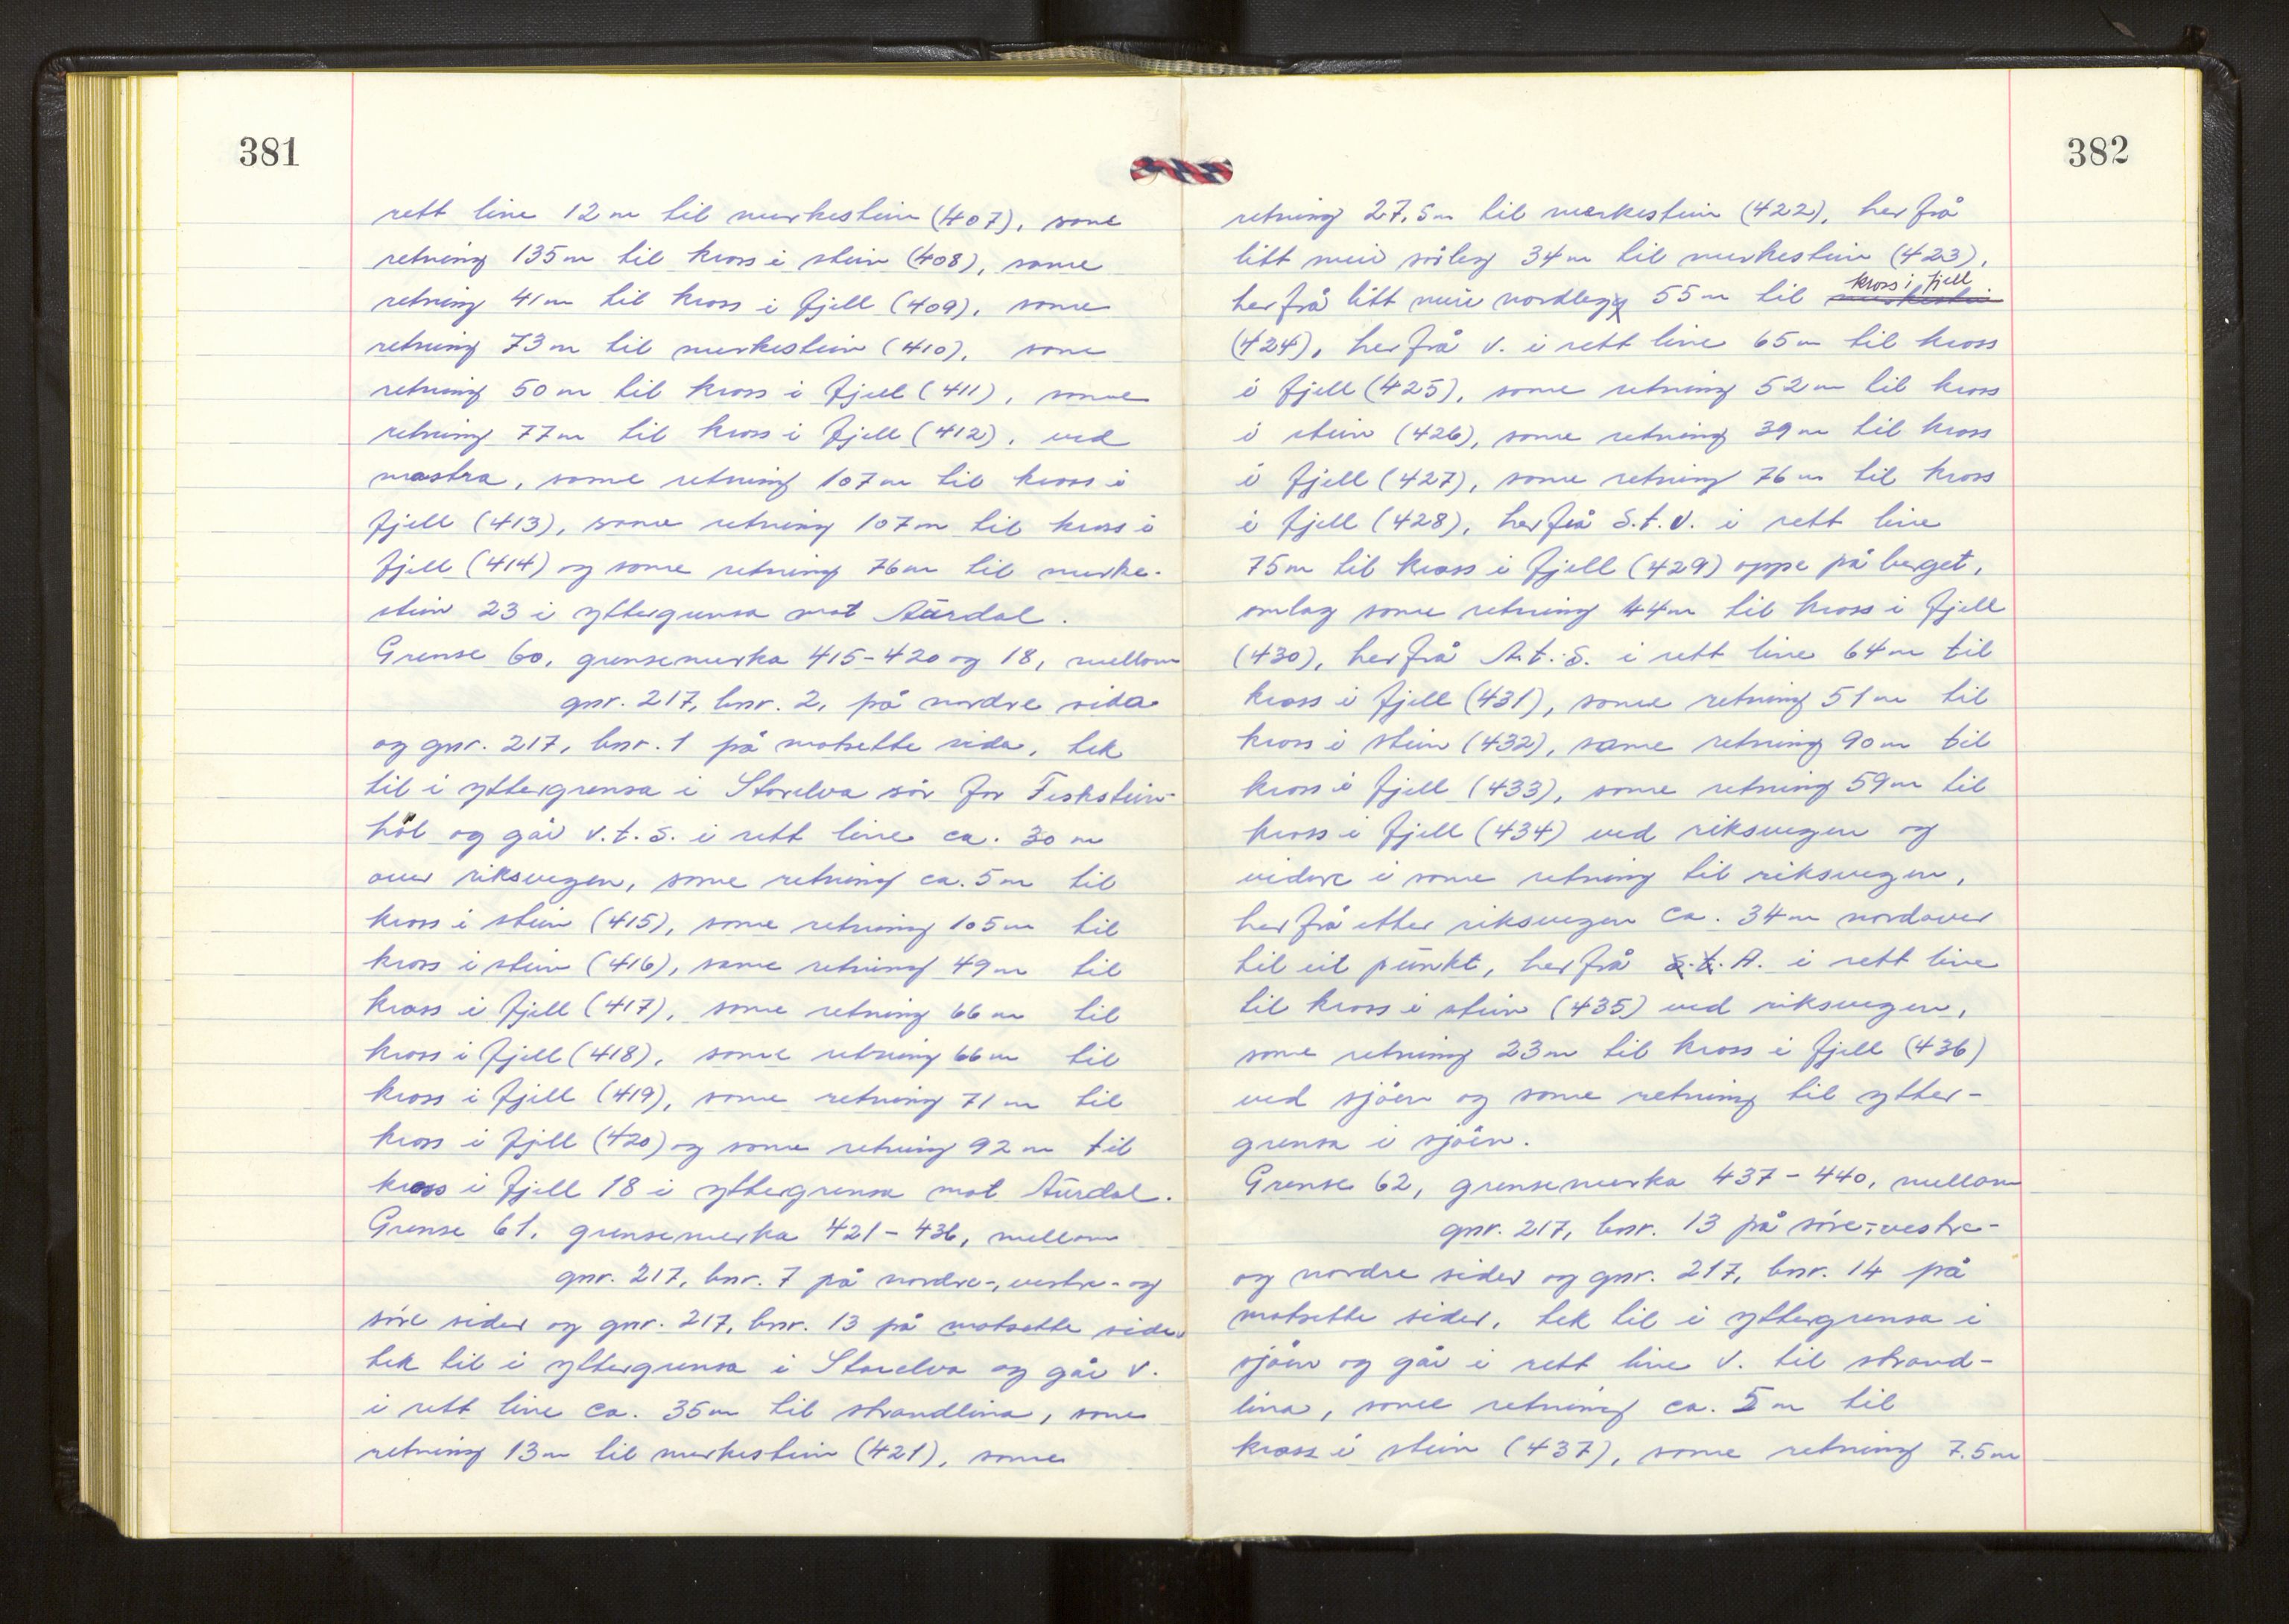 381
rett line 12 m til merkestein (407), same
retning 135 m til kross i stein (408), same
retning 41 m til kross i fjell (409), same
retning 73 m til merkestein (410), same
retning 50 m til kross i fjell (411), same
retning 77 m til kross i fjell (412), ved
mastra, same retning 107 m til kross i
fjell (413), same retning 107 m til kross i
fjell (414) og same retning 76 m til merke-
stein 23 i yttergrensa mot Aurdal.
Grense 60, grensemerka 415-420 og 18, mellom
gnr. 217, bnr. 2, på nordre sida
og gnr. 217, bnr. 1 på motsette sida, tek
til i yttergrensa i Storelva sör for Feskstein-
höl og går V.t.S. i rett line ca. 30 m
over riksvegen, same retning ca. 5 m til
kross i stein (415), same retning 105 m til
kross i stein (416), same retning 49 m til
kross i fjell (417), same retning 66 m til
kross i fjell (418), same retning 66 m til
kross i fjell (419), same retning 71 m til
kross i fjell (420) og same retning 92 m til
kross i fjell 18 i yttergrensa mot Aurdal.
Grense 61, grensemerka 421-436, mellom
gnr. 217, bnr. 7 på nordre-, vestre- og
söre sider og gnr. 217, bnr. 13 på motsette sider
tek til i yttergrensa i Storelva og går V.
i rett line ca. 35 m til strandlina, same
retning 13 m til merkestein (421), same
382
retning 27,5 m til merkestein (422), herfrå
litt meir sörleg 34 m til merkestein (423),
kross i fjell
herfrå litt meir nordleg 55 m til merkestein
(424), herfrå V. i rett line 65 m til kross
i fjell (425), same retning 52 m til kross
i stein (426), same retning 39 m til kross
i fjell (427), same retning 76 m til kross
i fjell (428), herfrå S.t.V. i rett line
75 m til kross i fjell (429) oppe på berget,
omlag same retning 44 m til kross i fjell
(430), herfrå A.t.S. i rett line 64 m til
kross i fjell (431), same retning 51 m til
kross i stein (432), same retning 90 m til
kross i fjell (433), same retning 59 m til
kross i fjell (434) ved riksvegen og
vidare i same retning til riksvegen,
herfrå etter riksvegen ca. 34 m nordover
til eit punkt, herfrå S.t. A. i rett line
til kross i stein (435) ved riksvegen,
same retning 23 m til kross i fjell (436)
ved sjöen og same retning til ytter-
grensa i sjöen.
Grense 62, grensemerka 437-440, mellom
gnr. 217, bnr. 13 på söre-, vestre-
og nordre sider og gnr. 217, bnr. 14 på
motsette sider, tek til i yttergrensa i
sjöen og går i rett line V. til strand-
lina, same retning ca. 5 m til
kross i stein (437), same retning 7.5 m